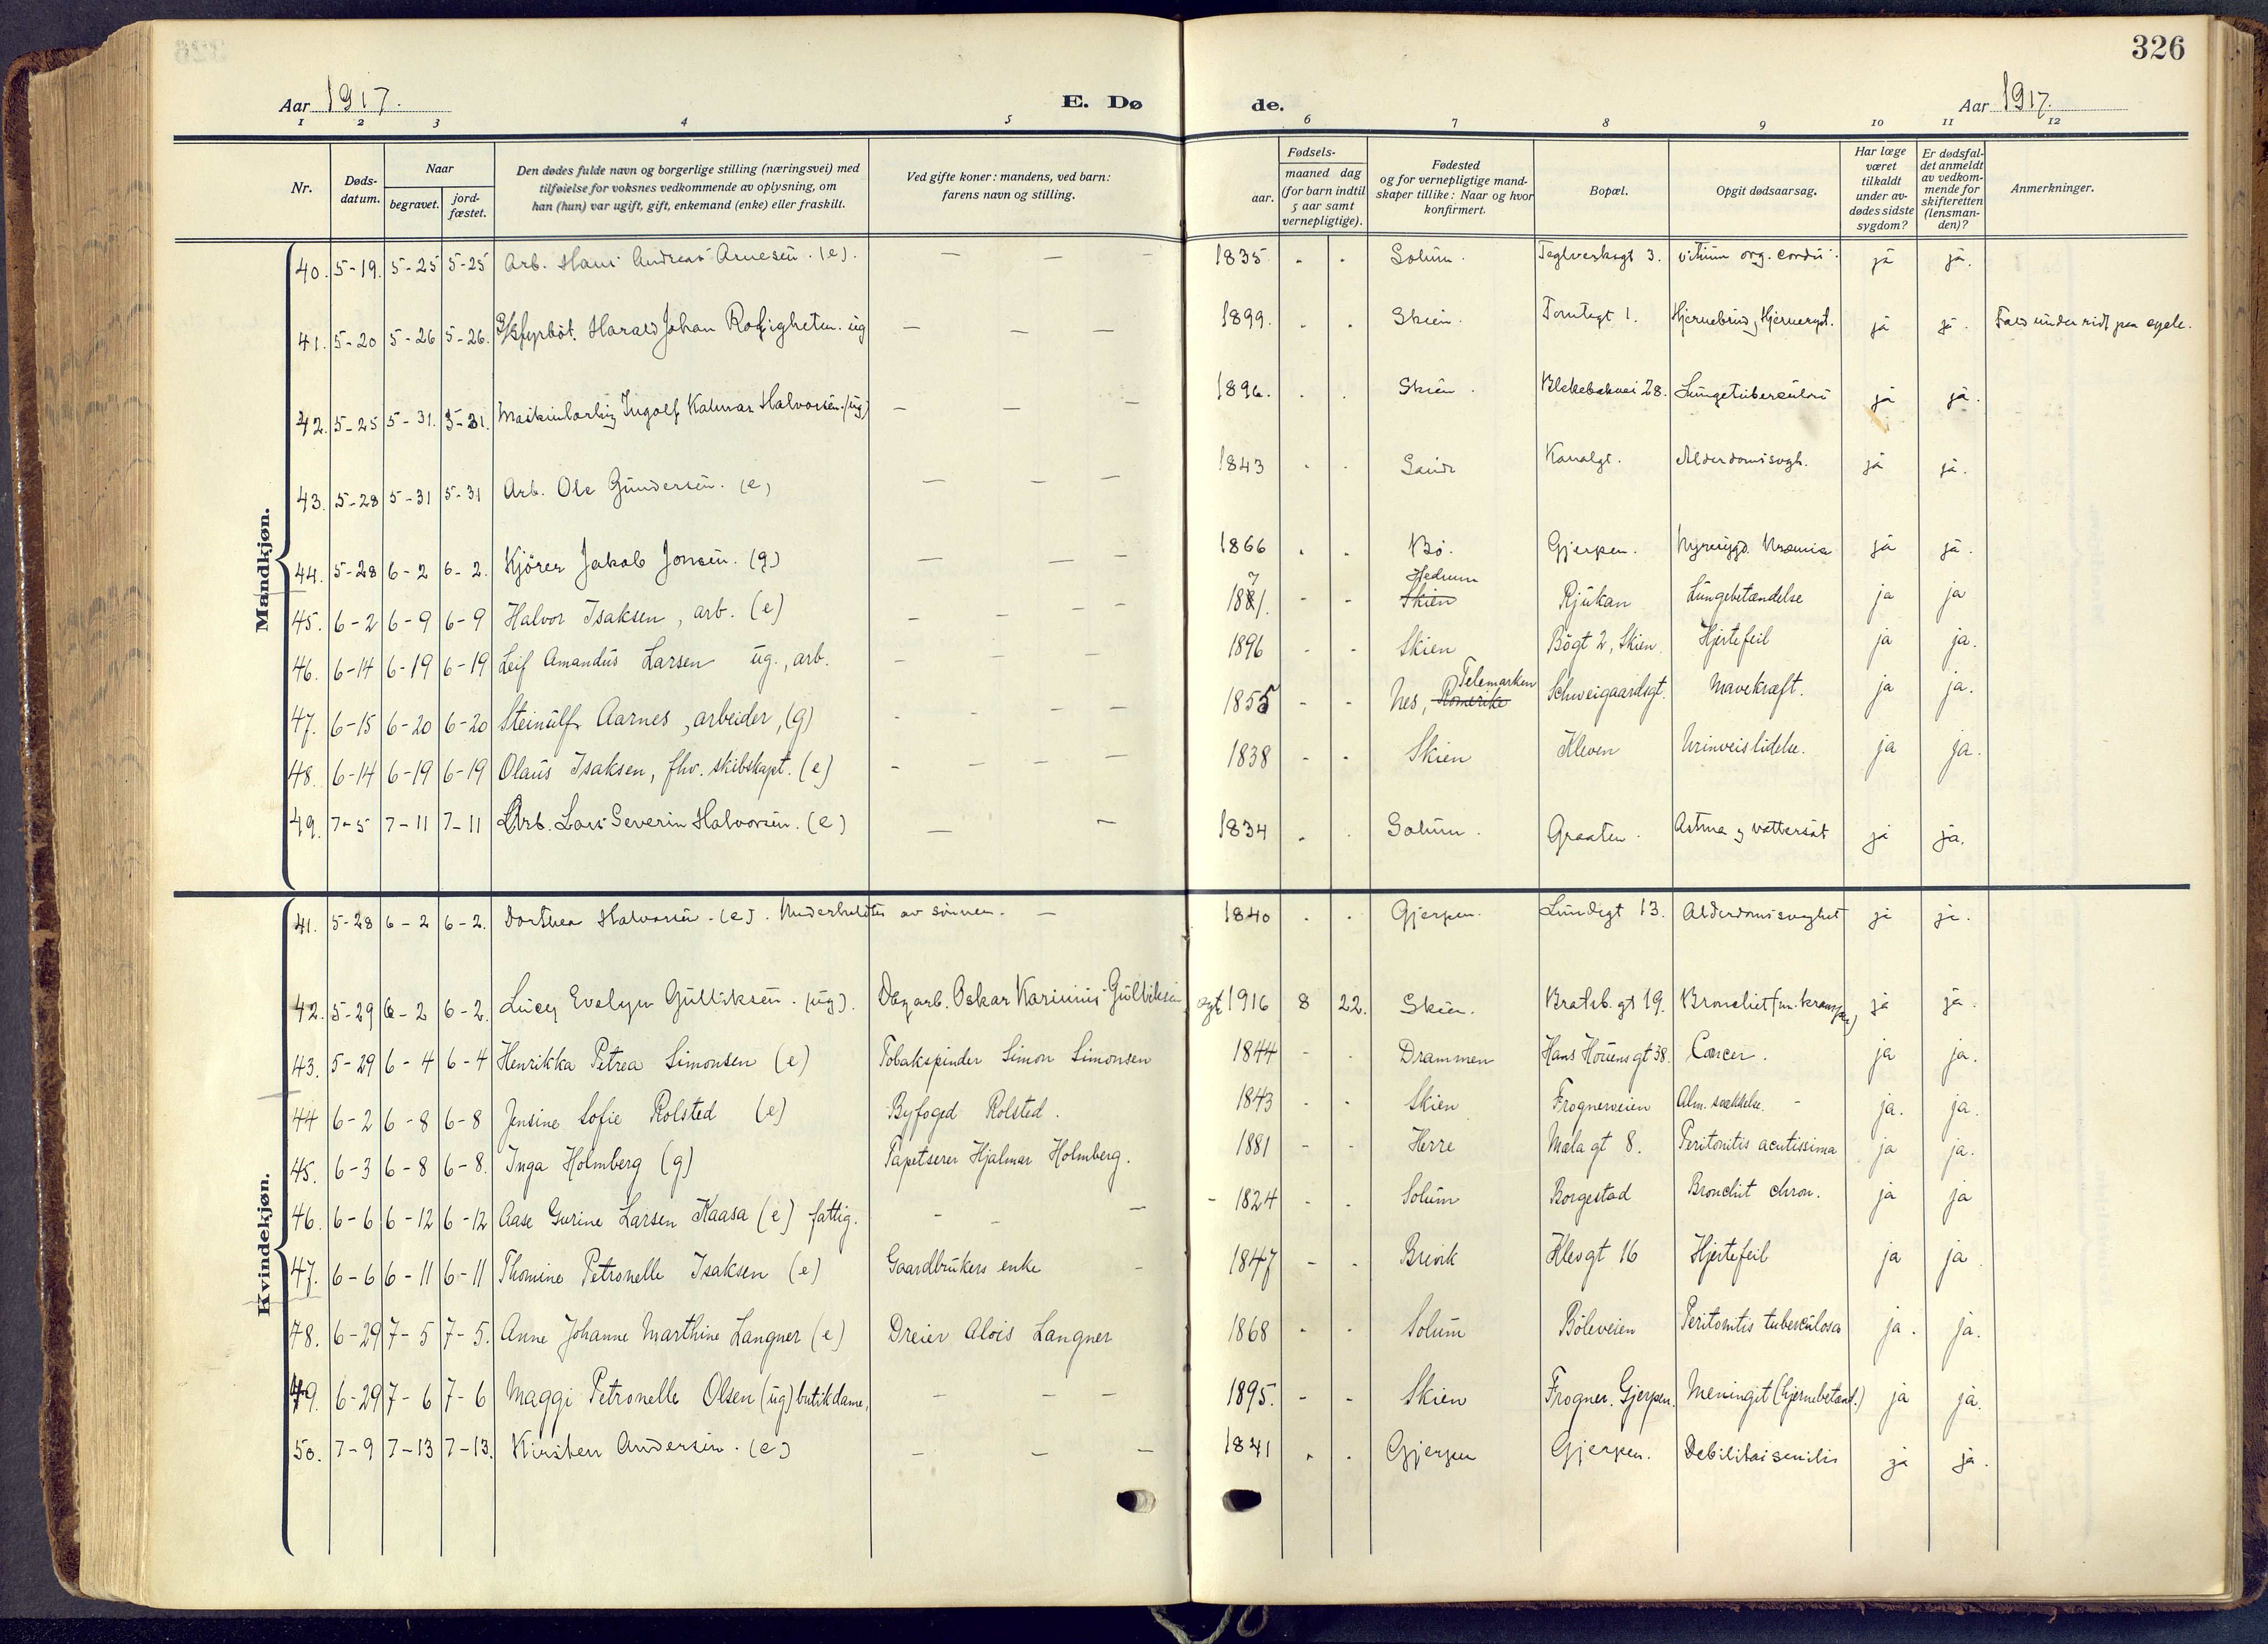 326
Aar 1917. E. Dø de. Aar 1917.
1 2 3 4 5 6 7 8 9 10 11 12
Nr. Døds-datum. Naar begravet. jord-fæstet. Den dødes fulde navn og borgerlige stilling (næringsvei) med tilføielse for voksnes vedkommende av oplysning, om han (hun) var ugift, gift, enkemand (enke) eller fraskilt. Ved gifte koner: mandens, ved barn: farens navn og stilling. Fødsels- aar. maaned dag (for barn indtil 5 aar samt vernepligtige). Fødested og for vernepligtige mand-skaper tillike: Naar og hvor konfirmert. Bopæl. Opgit dødsaarsag. Har læge været tilkaldt under av-dødes sidste sygdom? Er dødsfal-det anmeldt av vedkom-mende for skifteretten (lensman-den)? Anmerkninger.
Mandkjøn.
40. 5-19. 5-25 5-25 Arb. Hans Andreas Arnesen. (e). — — — 1835 - - Solum. Teglverksgt 3. vitium org. cordis. ja ja.
41. 5-20 5-26 5-26. Harald Johan Roligheten. ug — — — 1899. - - Skien. Tomtegt 1. ja ja. Fald under ridt paa cycle.
42. 5-25 5-31. 5-31. Maskinlærling Ingolf Kalmar Halvorsen. (ug) — — — 1896. - - Skien. Blekebakvei 28. Lungetuberculos ja ja.
43. 5-28 5-31 5-31 Arb. Ole Gundersen. (e) — — — 1843 - - Kanalgt. Alderdomssvgh. ja ja.
44. 5-28 6-2 6-2. Kjører Jakob Jonsen. (g) — — 1866 - - Bø. Gjerpen. Nyresygd. Uræmia ja ja.
45. 6-2 6-9 6-9 Halvor Isaksen, arb. (e) - - - - 1871. - - Skien Hedrum Rjukan Lungebetændelse ja ja
46. 6-14 6-19 6-19 Leif Amandus Larsen ug., arb. - - - 1896 - - Skien Bøgt 2, Skien. Hjertefeil ja ja.
47. 6-15 6-20 6-20 Steinulf Aarnes, arbeider, (g) - - - - 1855 - - Nes, Romerike Telemarken Schweigaardsgt. Mavekræft. ja ja.
48. 6-14 6-19 6-19 Olaus Isaksen, fhv. skibskapt. (e) - - - - 1838 - - Skien Kleven Urinveislidelse. ja ja.
49. 7-5 7-11 7-11 Arb. Lars Severin Halvorsen. (e) — — 1834 - - Solum. Graaten. Astma og vattersot ja ja.
Kvindekjøn.
41. 5-28 6-2 6-2. Dorthea Halvorsen. (e). Underholdtes av sønnen. — 1840 - - Gjerpen. Lundegt 13. Alderdomssvaghet ja ja.
42. 5-29 6-2 6-2. Lucy Evelyn Gulliksen. (ug). Dagarb. Oskar Karinius Gulliksen, ægt 1916 8 22. Skien. Bratsb. gt 19. Bronchit (m. kramper) ja ja.
43. 5-29 6-4 6-4 Henrikka Petrea Simonsen (e) Tobakspinder Simon Simonsen 1844 - - Drammen Hans Houens gt 38. Cancer. ja ja.
44 6-2 6-8 6-8 Jensine Sofie Rolsted (e) Byfoged Rolsted. 1843 - - Skien Frogneveien Alm. svækkelse. - ja. ja.
45. 6-3 6-8 6-8. Inga Holmberg (g) Tapetserer Hjalmar Holmberg. 1881 - - Herre Mæla gt 8. Peritonitis acutissima ja ja.
46. 6-6 6-12 6-12 Aase Gurine Larsen Kaasa (e) fattig. - - - - 1824 - - Solum Borgestad Bronchit chron. ja ja
47. 6-6 6-11 6-11 Thomine Petronelle Isaksen (e) Gaardbrukers enke - 1847 - - Brevik Klevgt 16 Hjertefeil ja ja
48. 6-29 7-5 7-5. Anne Johanne Marthine Langner (e) Dreier Alois Langner 1868 - - Solum Bøleveien Peritonitis tuberculosa ja. ja.
49. 6-29 7-6 7-6 Maggi Petronelle Olsen (ug) butikdame, - - - 1895. - - Skien Frogner. Gjerpen. Meningit (hjernebetænd.) ja ja.
50. 7-9 7-13 7-13. Kirsten Andersen. (e) — — — 1841 - - Gjerpen Gjerpen. Debilitas senilis ja ja.